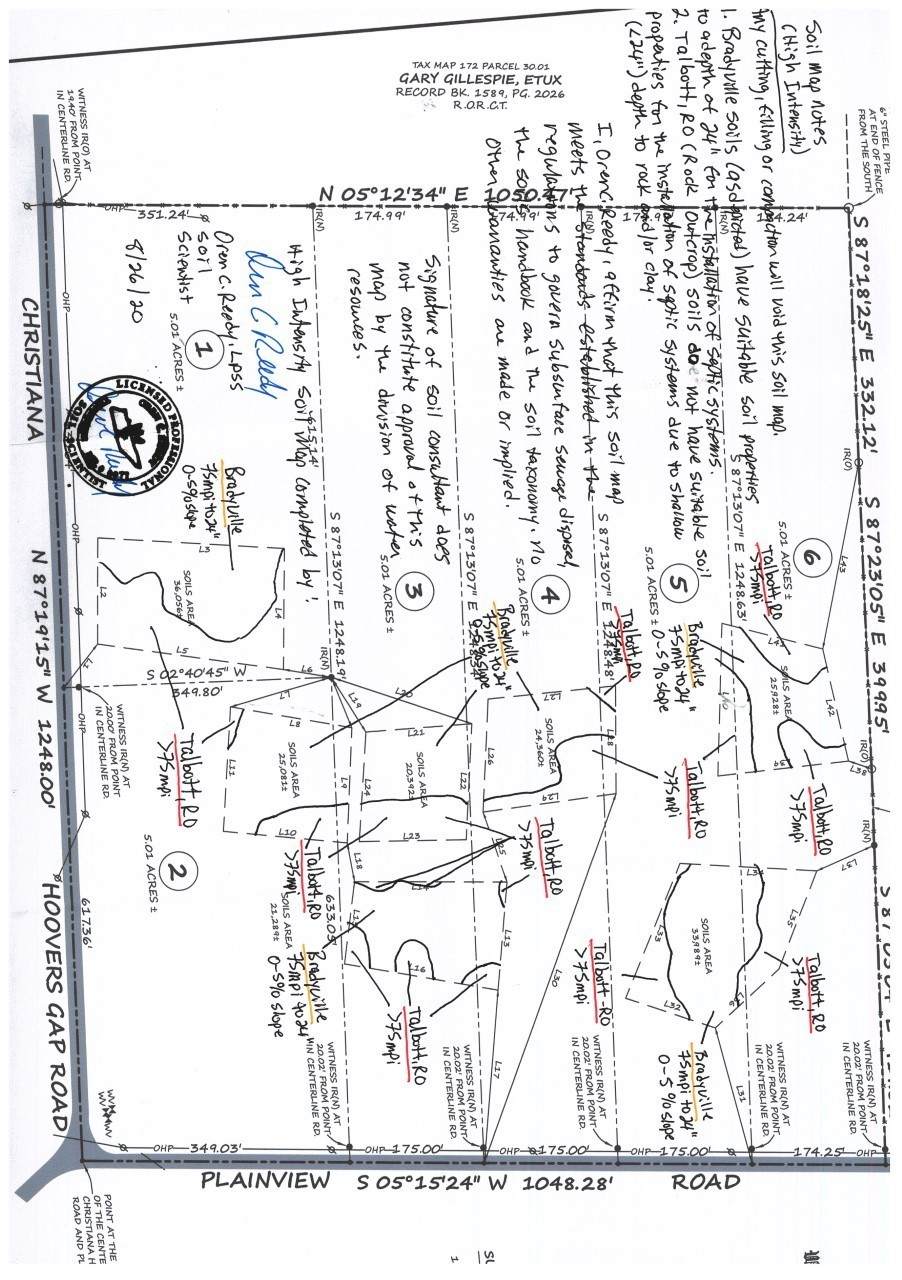 Soil Map Notes
(High Intensity)
Any cutting, filling or compaction will void this soil map.
1. Bradyville soils (as depicted) have suitable soil properties
to a depth of 24" for the installation of septic systems.
2. Talbott, RO (Rock Outcrop) soils do not have suitable soil
properties for the installation of septic systems due to shallow
(<24") depth to rock and/or clay.
I, Oren C. Reedy, affirm that this soil map
meets the standards established in the
regulations to govern subsurface sewage disposal,
the soils handbook and the soil taxonomy. No
other warranties are made or implied.
Signature of soil consultant does
not constitute approval of this
map by the division of water
resources.
High Intensity Soil Map completed by:
Oren C Reedy
Oren C. Reedy, LPSS
Soil
Scientist
8/26/20
TAX MAP 172 PARCEL 30.01
GARY GILLESPIE, ETUX
RECORD BK. 1589, PG. 2026
R.O.R.C.T.
6" STEEL PIPE
AT END OF FENCE
FROM THE SOUTH
WITNESS IR(O) AT
19.40' FROM POINT
IN CENTERLINE RD.
N 05°12'34" E 1050.47'
351.24'
174.99'
174.99'
S 87°18'25" E 332.12'
S 87°23'05" E 399.95'
IR(O)
IR(O)
IR(N)
6
5.01 ACRES ±
Talbott, RO
>75mpi
L43
L42
L38
SOILS AREA
25,928±
Talbott, RO
>75mpi
L37
L35
Talbott, RO
>75mpi
L31
S 87°13'07" E 1248.63'
5
5.01 ACRES ±
Bradyville
75mpi to 24"
0-5% slope
Talbott, RO
>75mpi
SOILS AREA
33,989±
L33
L32
Bradyville
75mpi to 24"
0-5% slope
S 87°13'07" E 1248.48'
Talbott, RO
>75mpi
Talbott-RO
>75mpi
L30
4
5.01 ACRES ±
Bradyville
75mpi to 24"
0-5% slope
SOILS AREA
24,360±
L27
L26
L28
Talbott, RO
>75mpi
S 87°13'07" E
3
5.01 ACRES ±
L20
L21
L22
L23
SOILS AREA
20,392±
L13
L16
L17
Talbott, RO
>75mpi
S 87°13'07" E 1248.19'
615.14'
633.05'
IR(N)
L19
L9
L18
1
5.01 ACRES ±
LICENSED PROFESSIONAL
SOIL SCIENTIST
Bradyville
75mpi to 24"
0-5% slope
L3
L2
L4
L5
L6
SOILS AREA
36,056±
S 02°40'45" W
349.80'
Talbott, RO
>75mpi
2
5.01 ACRES ±
L8
L11
L10
SOILS AREA
25,081±
Talbott, RO
>75mpi
SOILS AREA
21,289±
Bradyville
75mpi to 24"
0-5% slope
WITNESS IR(N) AT
20.00' FROM POINT
IN CENTERLINE RD.
WITNESS IR(N) AT
20.02' FROM POINT
IN CENTERLINE RD.
WITNESS IR(N) AT
20.02' FROM POINT
IN CENTERLINE RD.
WITNESS IR(N) AT
20.02' FROM POINT
IN CENTERLINE RD.
WITNESS IR(N) AT
20.02' FROM POINT
IN CENTERLINE RD.
OHP
CHRISTIANA
N 87°19'15" W 1248.00'
617.36'
HOOVERS GAP ROAD
349.03'
OHP
175.00'
OHP
175.00'
OHP
175.00'
174.25'
OHP
PLAINVIEW S 05°15'24" W 1048.28' ROAD
POINT AT THE
OF THE CENTE
CHRISTIANA H
ROAD AND PL